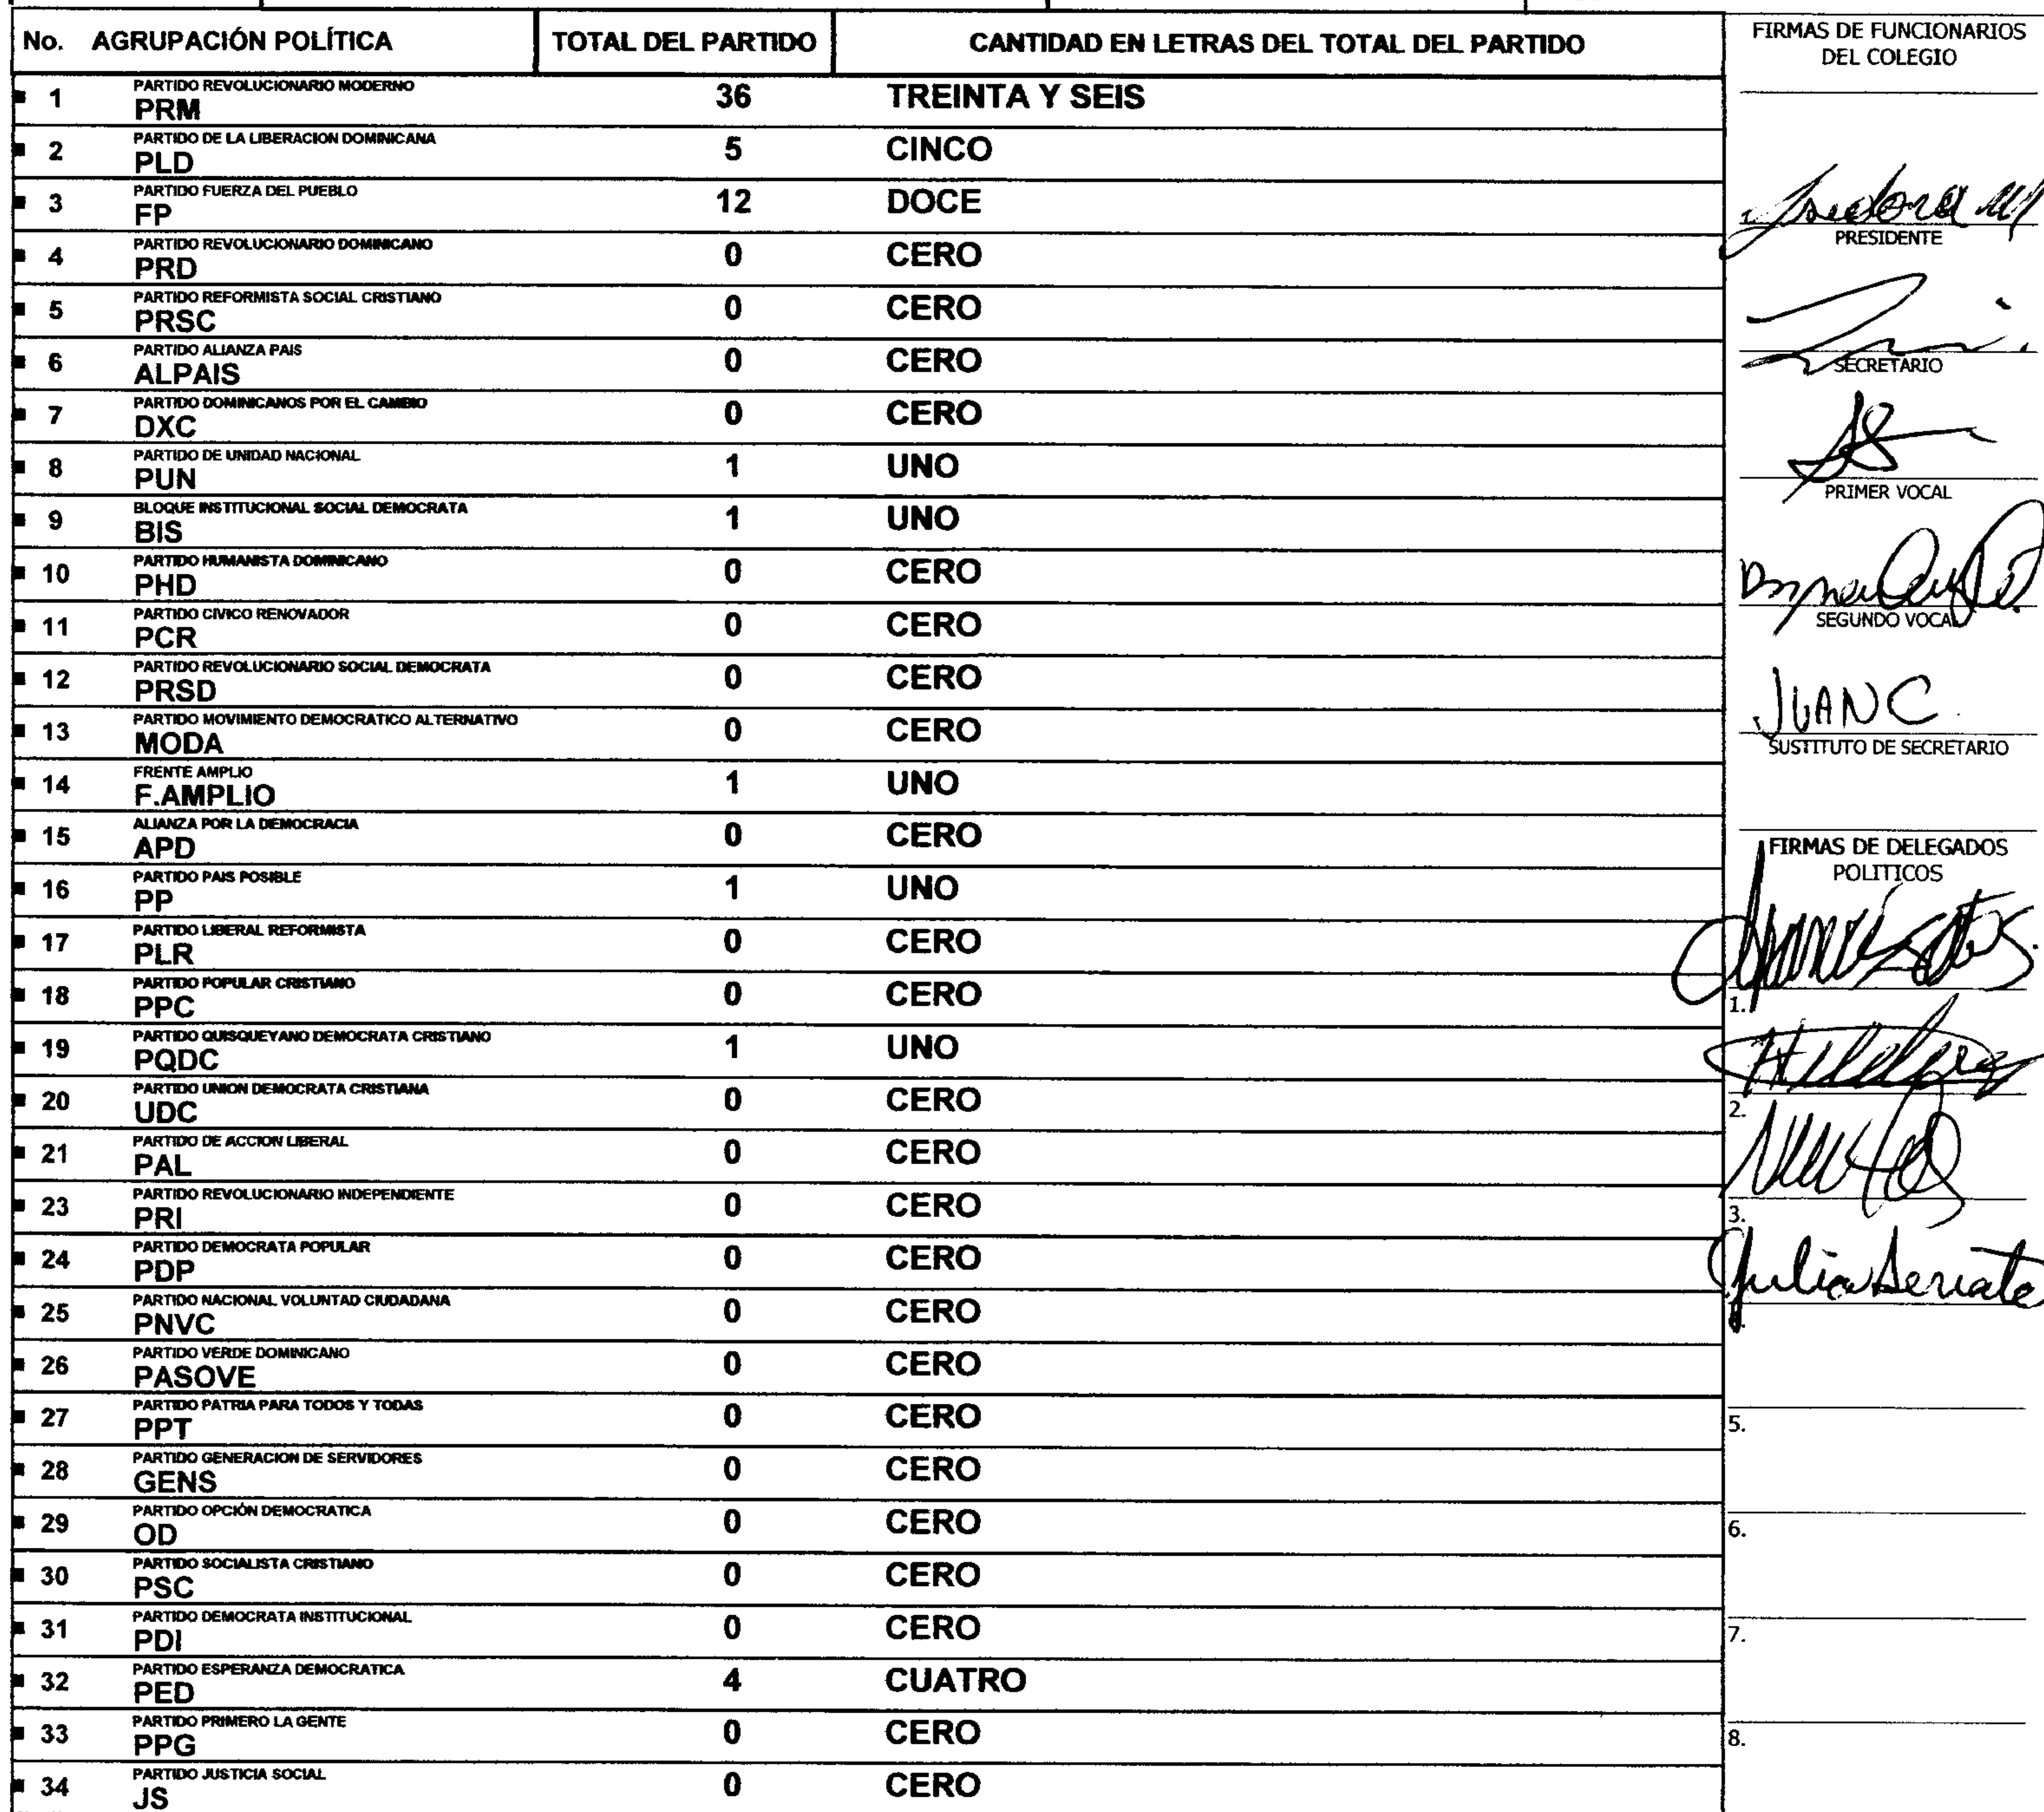 No. AGRUPACIÓN POLÍTICA TOTAL DEL PARTIDO CANTIDAD EN LETRAS DEL TOTAL DEL PARTIDO
PARTIDO REVOLUCIONARIO MODERNO
1 PRM 36 TREINTA Y SEIS
PARTIDO DE LA LIBERACION DOMINICANA
2 PLD 5 CINCO
PARTIDO FUERZA DEL PUEBLO
3 FP 12 DOCE
PARTIDO REVOLUCIONARIO DOMINICANO
4 PRD 0 CERO
PARTIDO REFORMISTA SOCIAL CRISTIANO
5 PRSC 0 CERO
PARTIDO ALIANZA PAIS
6 ALPAIS 0 CERO
PARTIDO DOMINICANOS POR EL CAMBIO
7 DXC 0 CERO
PARTIDO DE UNIDAD NACIONAL
8 PUN 1 UNO
BLOQUE INSTITUCIONAL SOCIAL DEMOCRATA
9 BIS 1 UNO
PARTIDO HUMANISTA DOMINICANO
10 PHD 0 CERO
PARTIDO CIVICO RENOVADOR
11 PCR 0 CERO
PARTIDO REVOLUCIONARIO SOCIAL DEMOCRATA
12 PRSD 0 CERO
PARTIDO MOVIMIENTO DEMOCRATICO ALTERNATIVO
13 MODA 0 CERO
FRENTE AMPLIO
14 F.AMPLIO 1 UNO
ALIANZA POR LA DEMOCRACIA
15 APD 0 CERO
PARTIDO PAIS POSIBLE
16 PP 1 UNO
PARTIDO LIBERAL REFORMISTA
17 PLR 0 CERO
PARTIDO POPULAR CRISTIANO
18 PPC 0 CERO
PARTIDO QUISQUEYANO DEMOCRATA CRISTIANO
19 PQDC 1 UNO
PARTIDO UNION DEMOCRATA CRISTIANA
20 UDC 0 CERO
PARTIDO DE ACCION LIBERAL
21 PAL 0 CERO
PARTIDO REVOLUCIONARIO INDEPENDIENTE
23 PRI 0 CERO
PARTIDO DEMOCRATA POPULAR
24 PDP 0 CERO
PARTIDO NACIONAL VOLUNTAD CIUDADANA
25 PNVC 0 CERO
PARTIDO VERDE DOMINICANO
26 PASOVE 0 CERO
PARTIDO PATRIA PARA TODOS Y TODAS
27 PPT 0 CERO
PARTIDO GENERACION DE SERVIDORES
28 GENS 0 CERO
PARTIDO OPCIÓN DEMOCRATICA
29 OD 0 CERO
PARTIDO SOCIALISTA CRISTIANO
30 PSC 0 CERO
PARTIDO DEMOCRATA INSTITUCIONAL
31 PDI 0 CERO
PARTIDO ESPERANZA DEMOCRATICA
32 PED 4 CUATRO
PARTIDO PRIMERO LA GENTE
33 PPG 0 CERO
PARTIDO JUSTICIA SOCIAL
34 JS 0 CERO
FIRMAS DE FUNCIONARIOS
DEL COLEGIO
Isidora
PRESIDENTE
SECRETARIO
PRIMER VOCAL
SEGUNDO VOCAL
JUAN C.
SUSTITUTO DE SECRETARIO
FIRMAS DE DELEGADOS
POLITICOS
1.
2.
3.
Julia
5.
6.
7.
8.